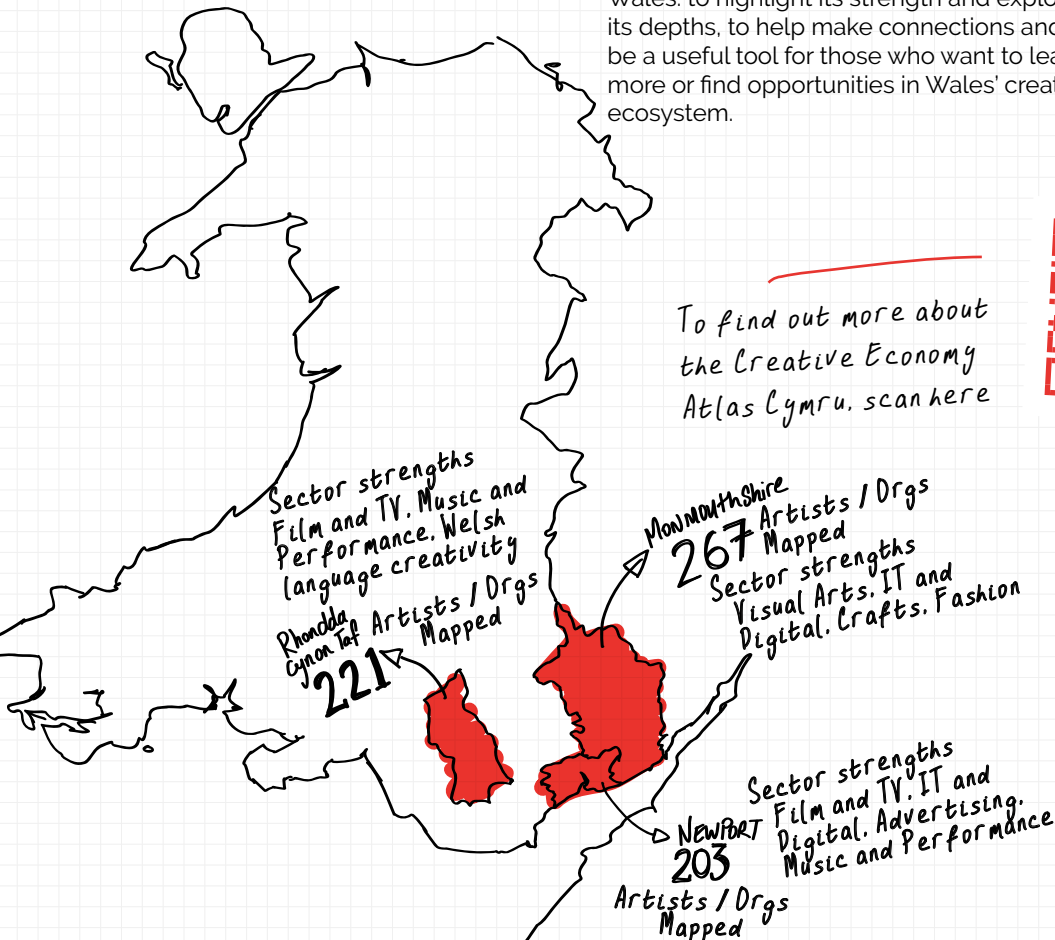 Wales: to highlight its strength and explo
its depths, to help make connections and
be a useful tool for those who want to lea
more or find opportunities in Wales' creat
ecosystem.
To find out more about
the Creative Economy
Atlas Cymru, scan here
Sector strengths
Film and TV, Music and
Performance, Welsh
language creativity
Rhondda
Cynon Taf
221
Artists / Orgs
Mapped
Monmouthshire
267
Artists / Orgs
Mapped
Sector strengths
Visual Arts, IT and
Digital, Crafts, Fashion
NEWPORT
203
Artists / Orgs
Mapped
Sector strengths
Film and TV, IT and
Digital, Advertising,
Music and Performance